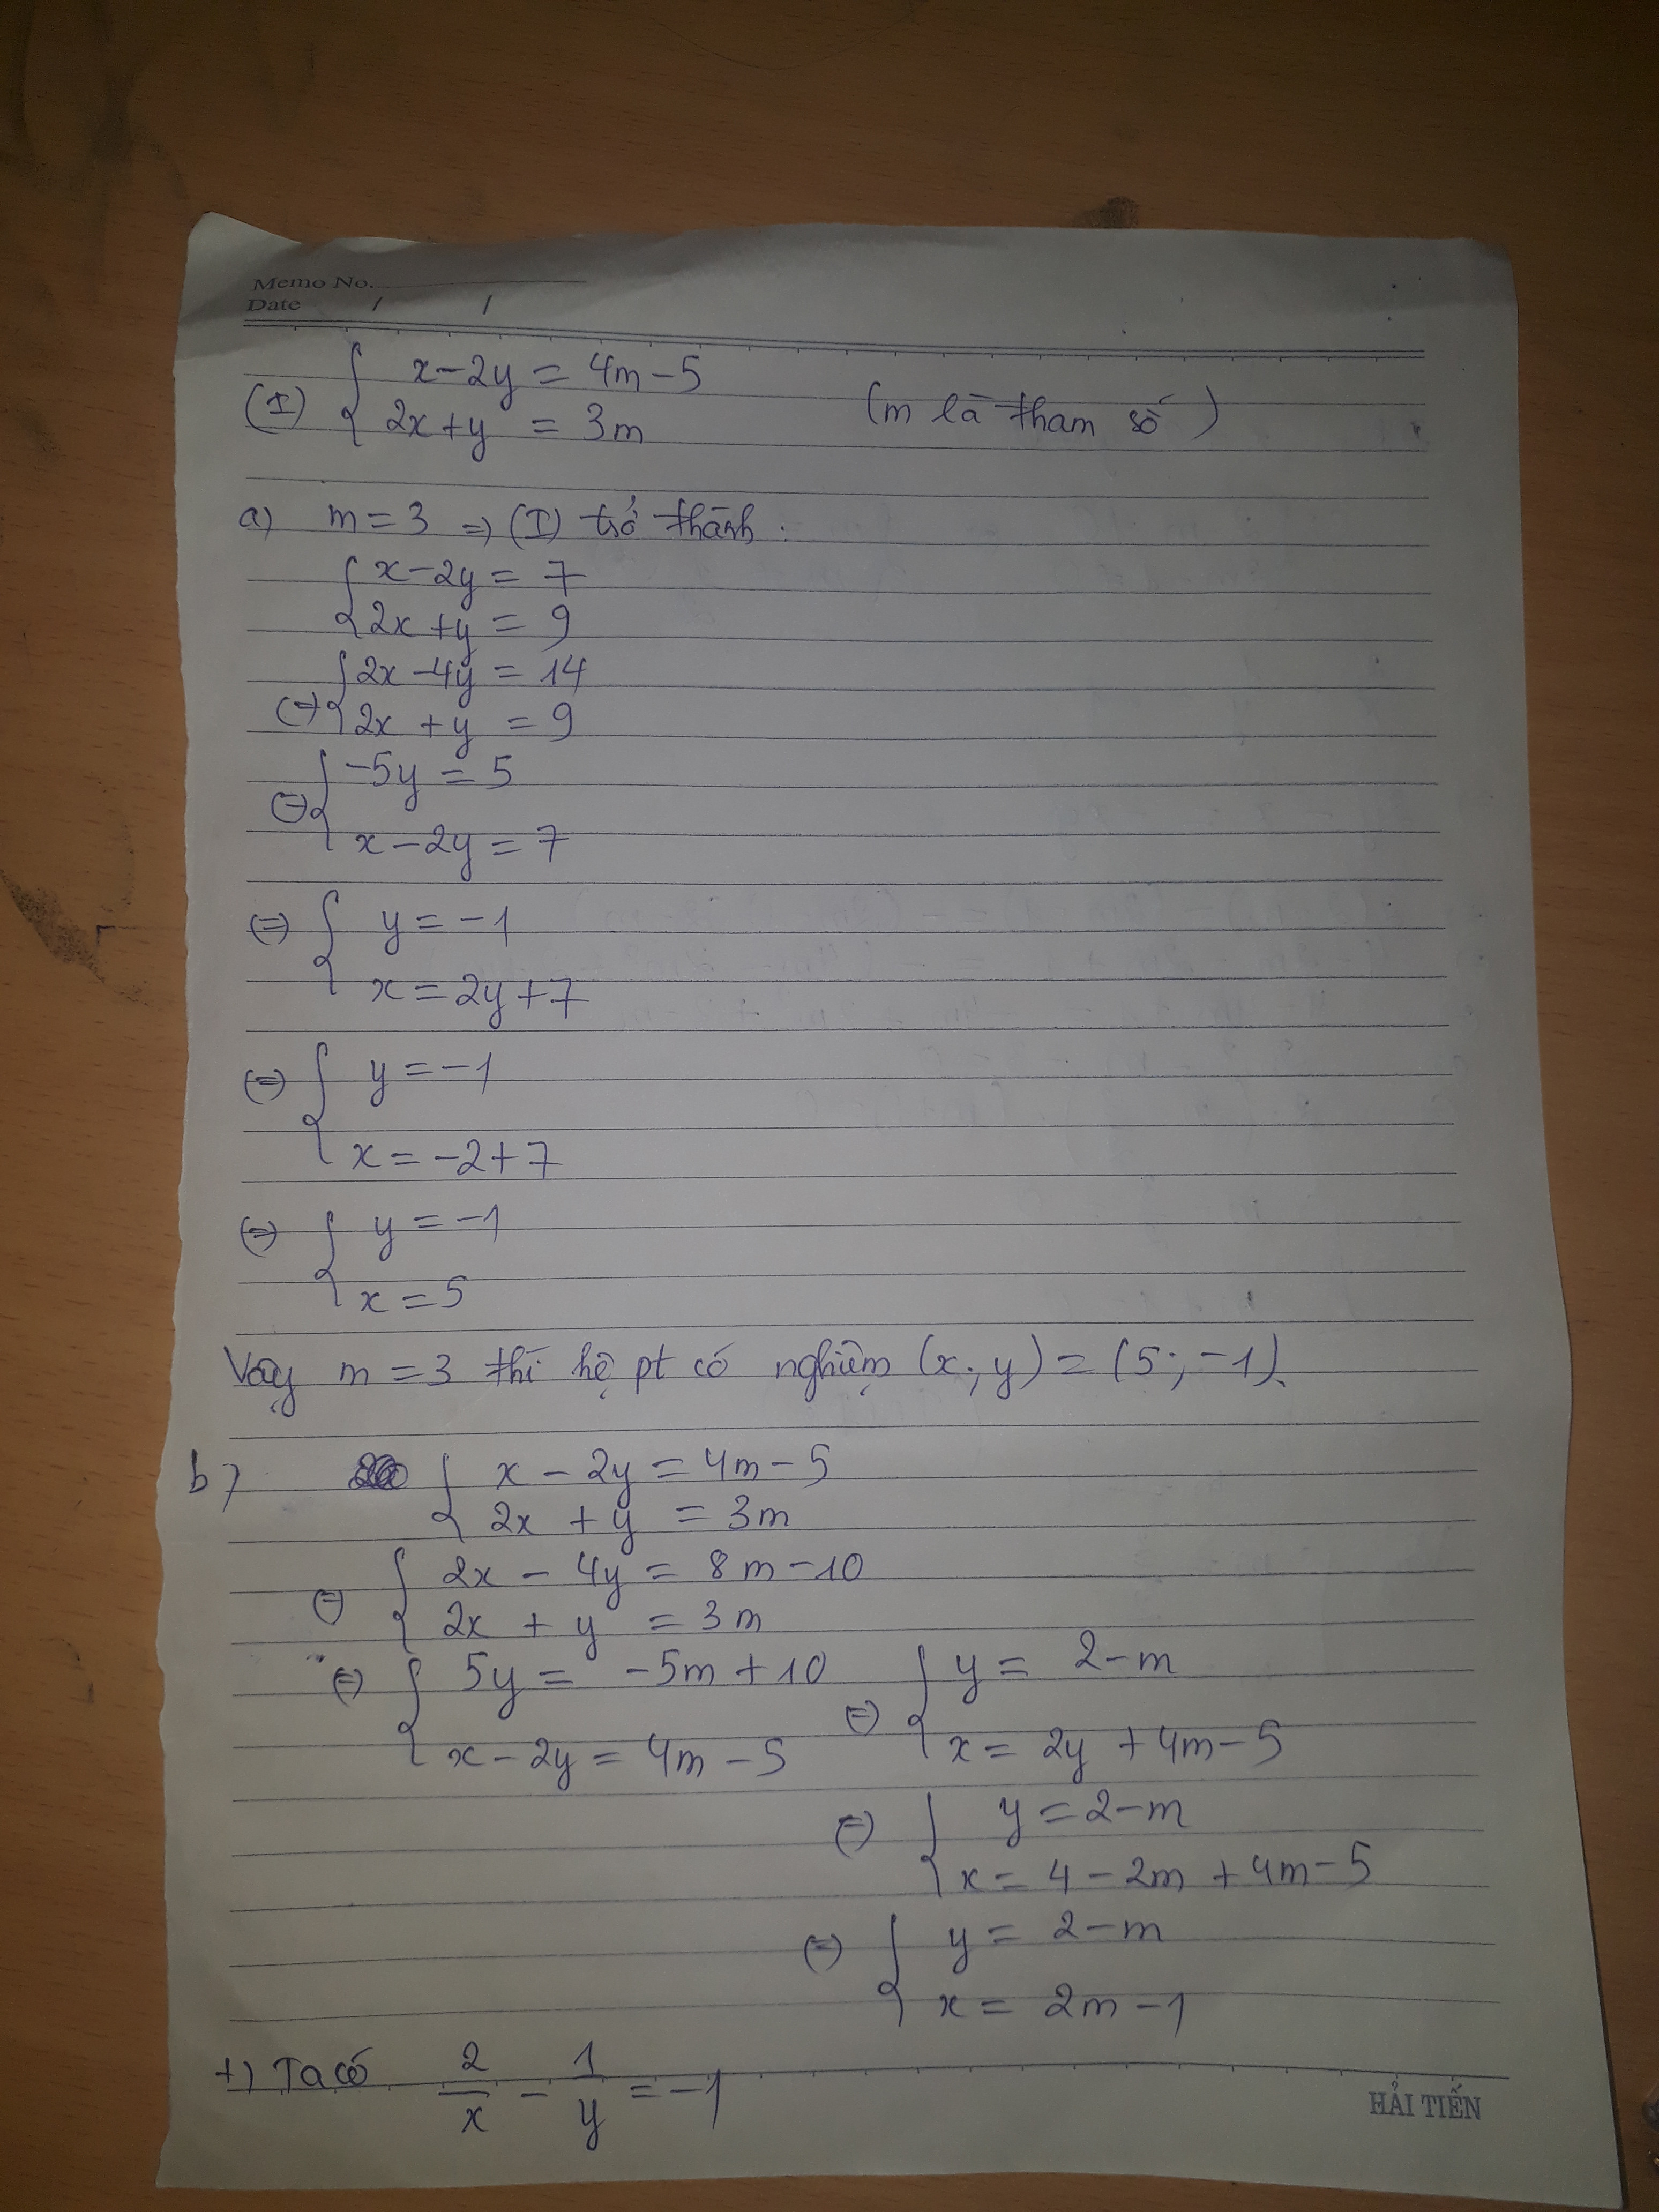 Memo No.
Date / /
(I) { x - 2y = 4m - 5
2x + y = 3m (m là tham số)
a) m = 3 => (I) trở thành:
{ x - 2y = 7
2x + y = 9
(=) { 2x - 4y = 14
2x + y = 9
(=) { -5y = 5
x - 2y = 7
(=) { y = -1
x = 2y + 7
(=) { y = -1
x = -2 + 7
(=) { y = -1
x = 5
Vậy m = 3 thì hệ pt có nghiệm (x; y) = (5; -1).
b) { x - 2y = 4m - 5
2x + y = 3m
(=) { 2x - 4y = 8m - 10
2x + y = 3m
(=) { 5y = -5m + 10
x - 2y = 4m - 5
(=) { y = 2 - m
x = 2y + 4m - 5
(=) { y = 2 - m
x = 4 - 2m + 4m - 5
(=) { y = 2 - m
x = 2m - 1
+) Ta có 2/x - 1/y = -1
HẢI TIẾN